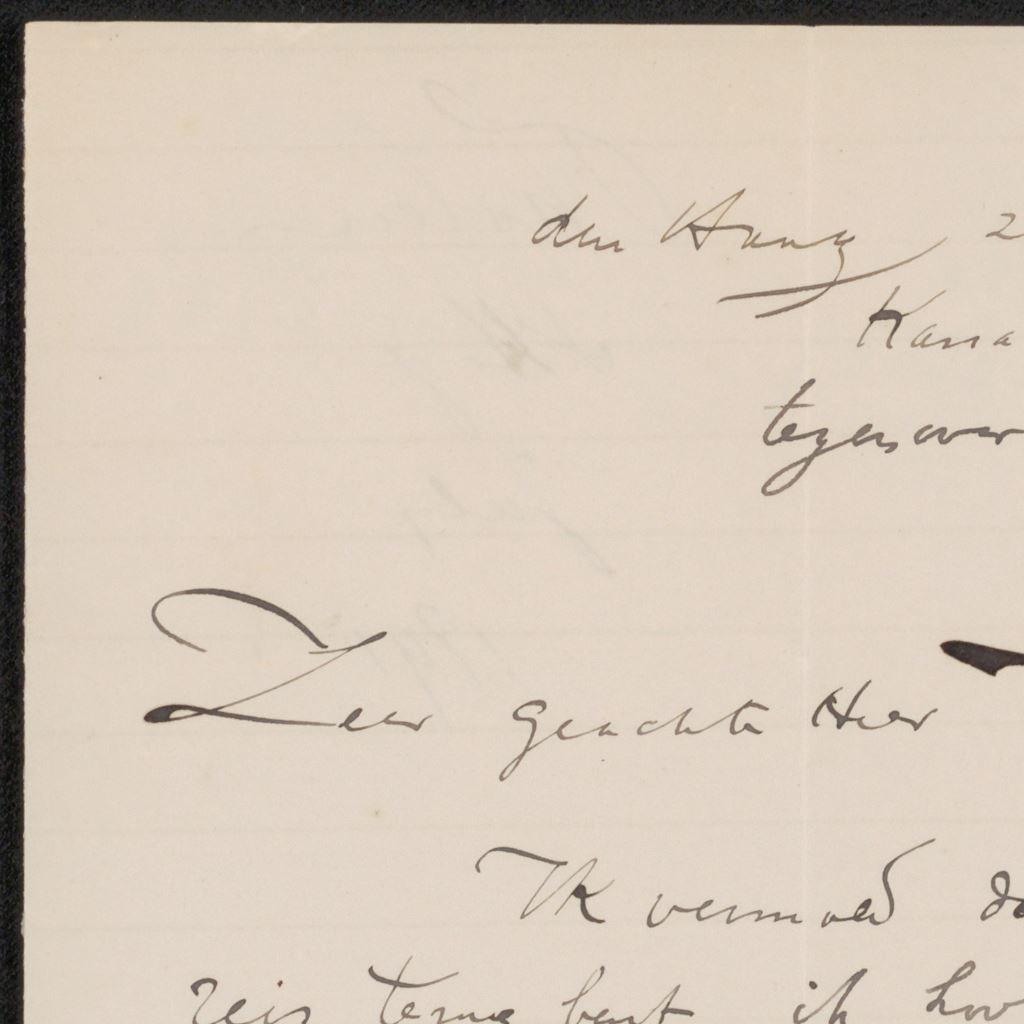 den Haag 2
Kana
tegenover
Zeer geachte Heer
Ik vermoed da
reis terug bent ik hoo